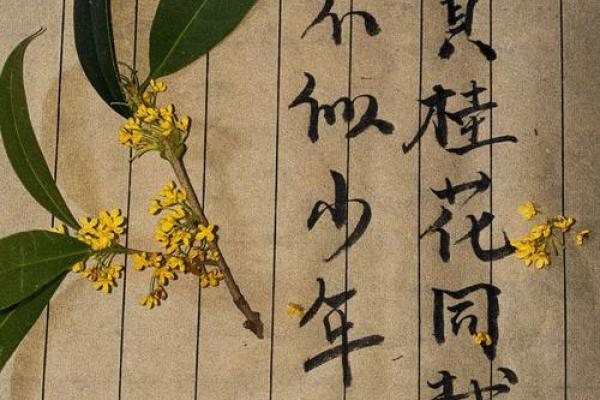 桂花同
不似少年